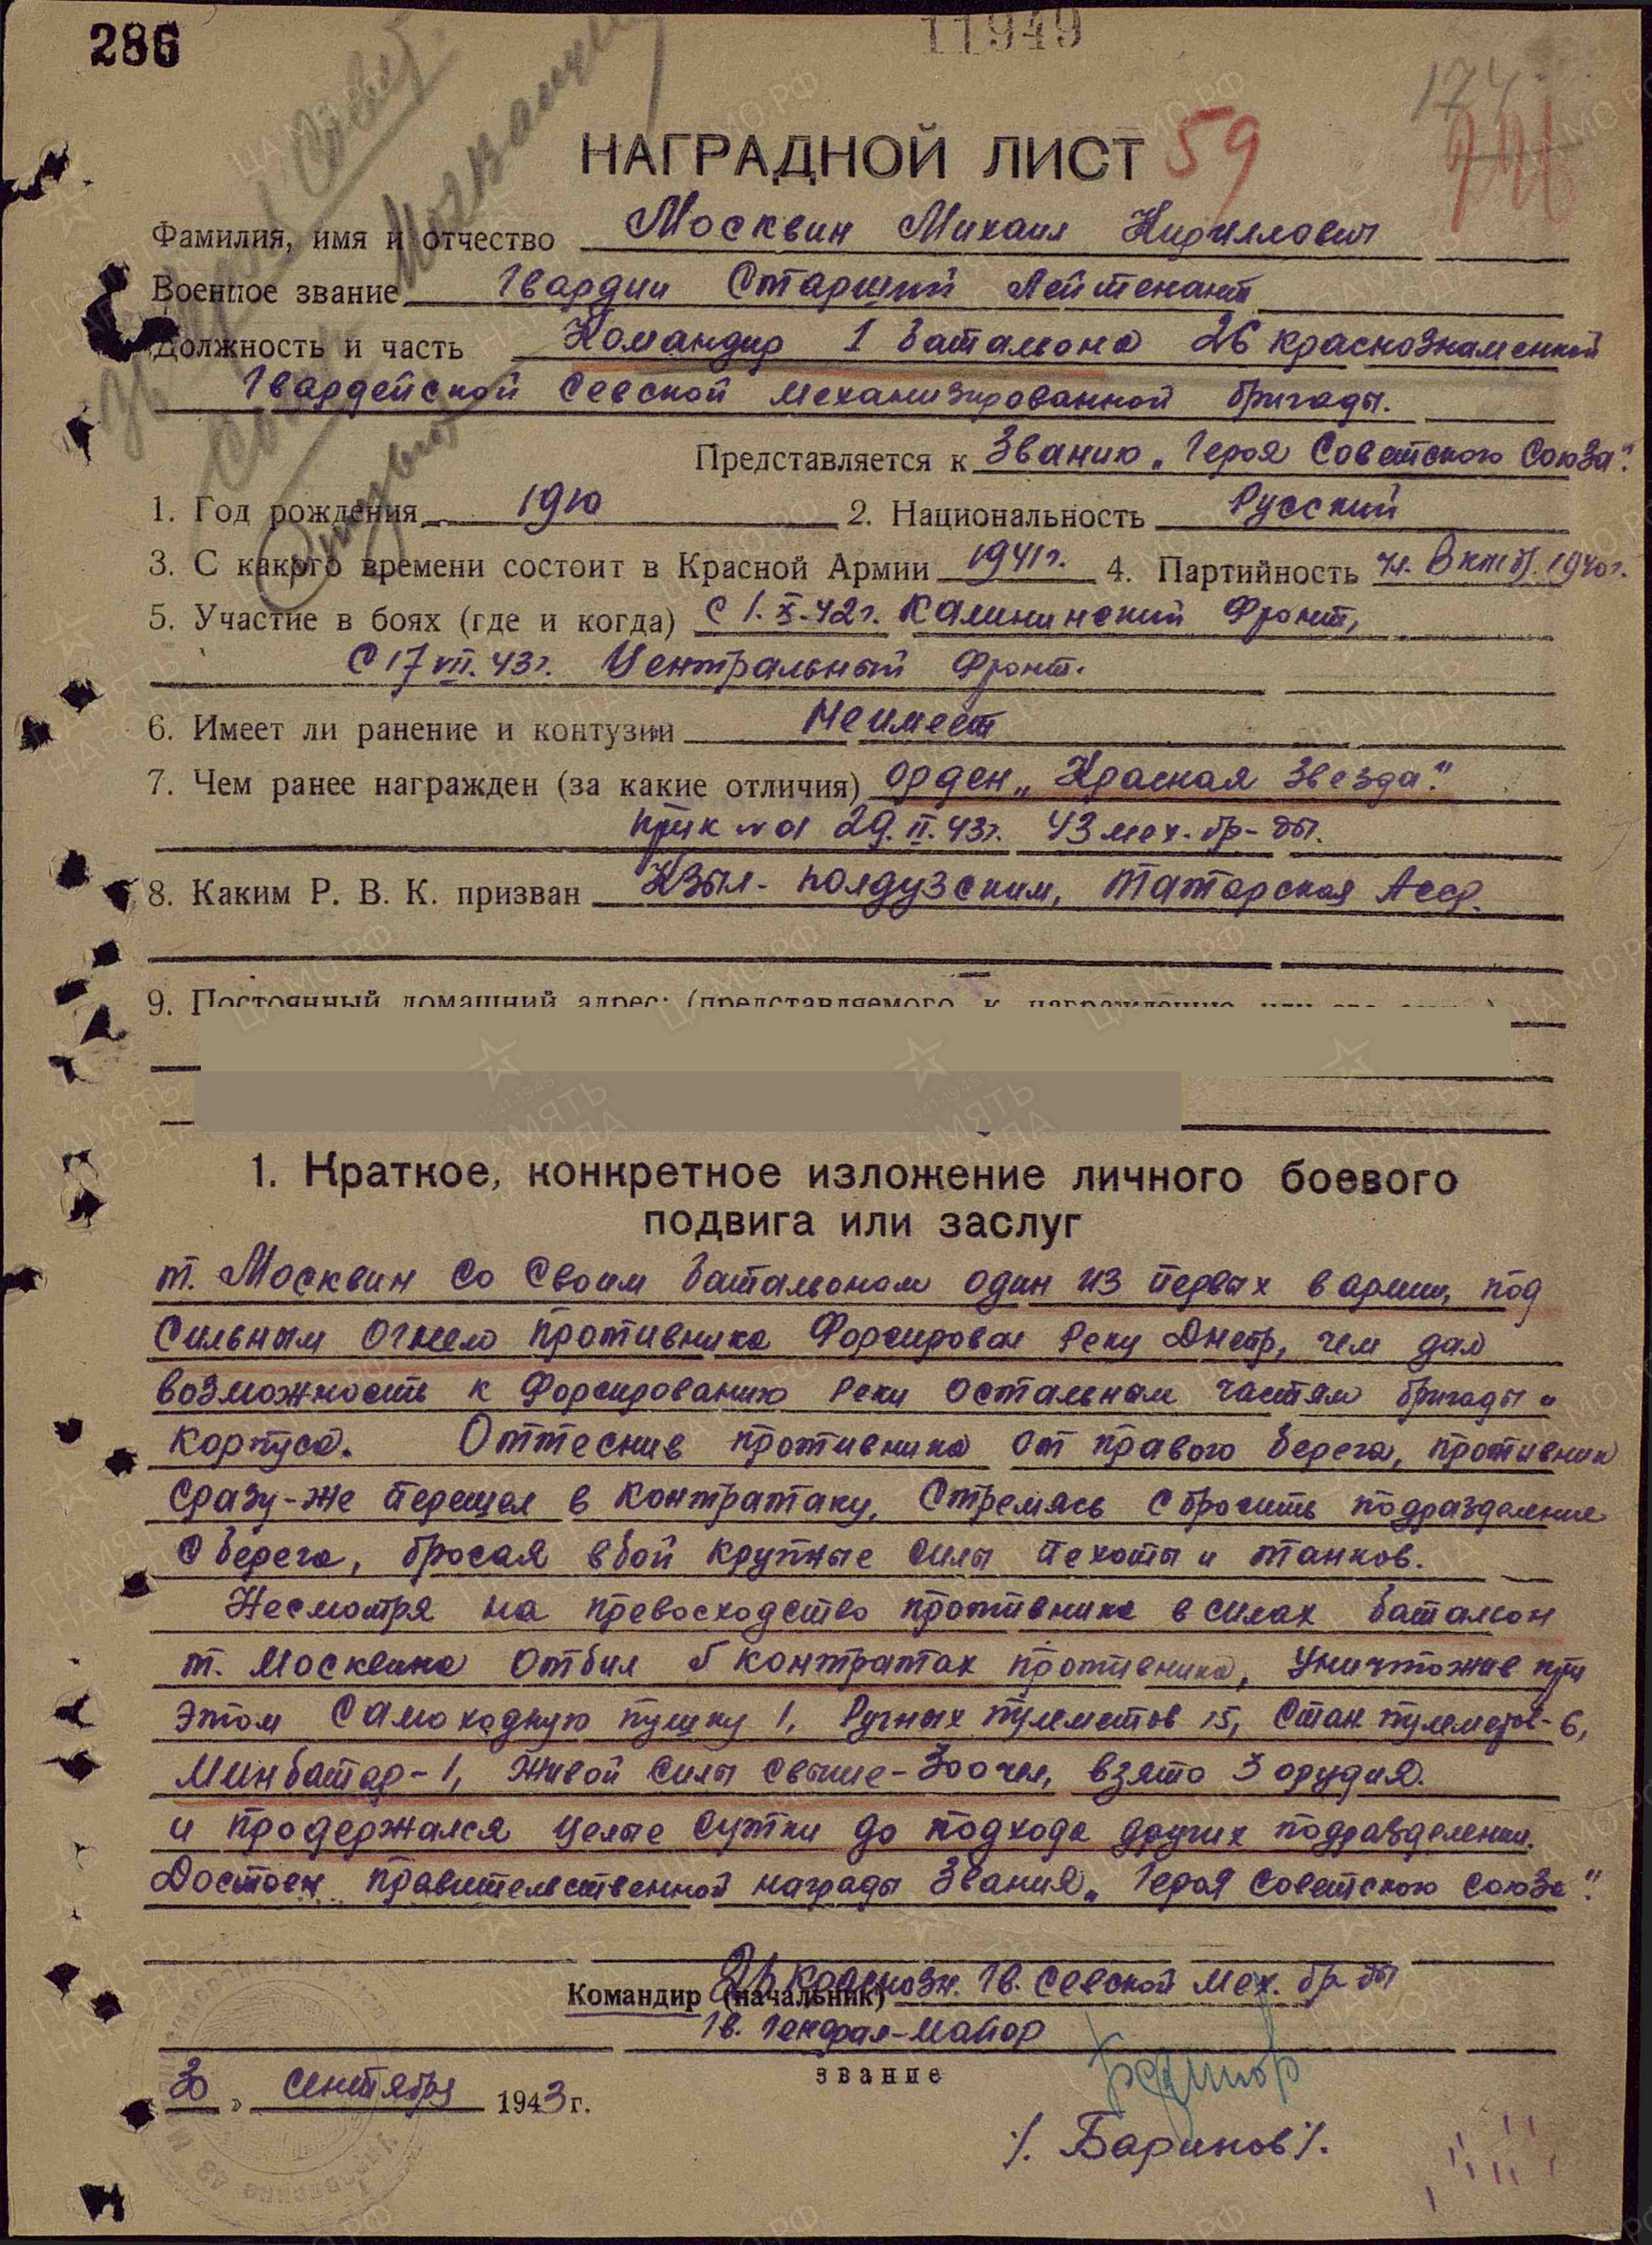 286
11949
174
НАГРАДНОЙ ЛИСТ 59
Фамилия, имя и отчество Москвин Михаил Кириллович
Военное звание Гвардии Старший Лейтенант
Должность и часть Командир 1 батальона 26 краснознаменной
Гвардейской Севской механизированной бригады.
Представляется к Званию „Героя Советского Союза".
1. Год рождения 1910 2. Национальность Русский
3. С какого времени состоит в Красной Армии 1941г. 4. Партийность чл. ВКП(б). 1940г.
5. Участие в боях (где и когда) С 1.X.42г. Калининский Фронт,
С 17 VII. 43г. Центральный Фронт.
6. Имеет ли ранение и контузии Не имеет
7. Чем ранее награжден (за какие отличия) орден „Красная Звезда".
прик №01 29.II.43г. 43 мех. бр-ды.
8. Каким Р. В. К. призван Кзыл-полдузским, Татарская Асср.
9. Постоянный домашний адрес: (представляемого к награждению или его
1. Краткое, конкретное изложение личного боевого
подвига или заслуг
т. Москвин со своим батальоном один из первых в армии, под
Сильным огнем противника Форсировал Реку Днепр, чем дал
возможность к Форсированию Реки остальным частям бригады и
корпуса. Оттеснив противника от правого берега, противник
сразу-же перешел в контратаку, Стремясь сбросить подразделение
с берега, бросая в бой крупные силы пехоты и танков.
Несмотря на превосходство противника в силах батальон
т. Москвина отбил 5 контратак противника, Уничтожив при
этом Самоходную пушку 1, Ручных пулеметов 15, Стан. пулеметов-6,
Минбатар-1, Живой силы свыше-300 чел, взято 3 орудия.
и продержался целые сутки до подхода других подразделении.
Достоен правительственной награды Звания „Героя Советского союза".
Командир (начальник) 26 Краснозн. Гв. Севской Мех. бр-ды
Гв. Генерал-Майор
звание
30 » Сентября 1943г.
/. Баринов/.